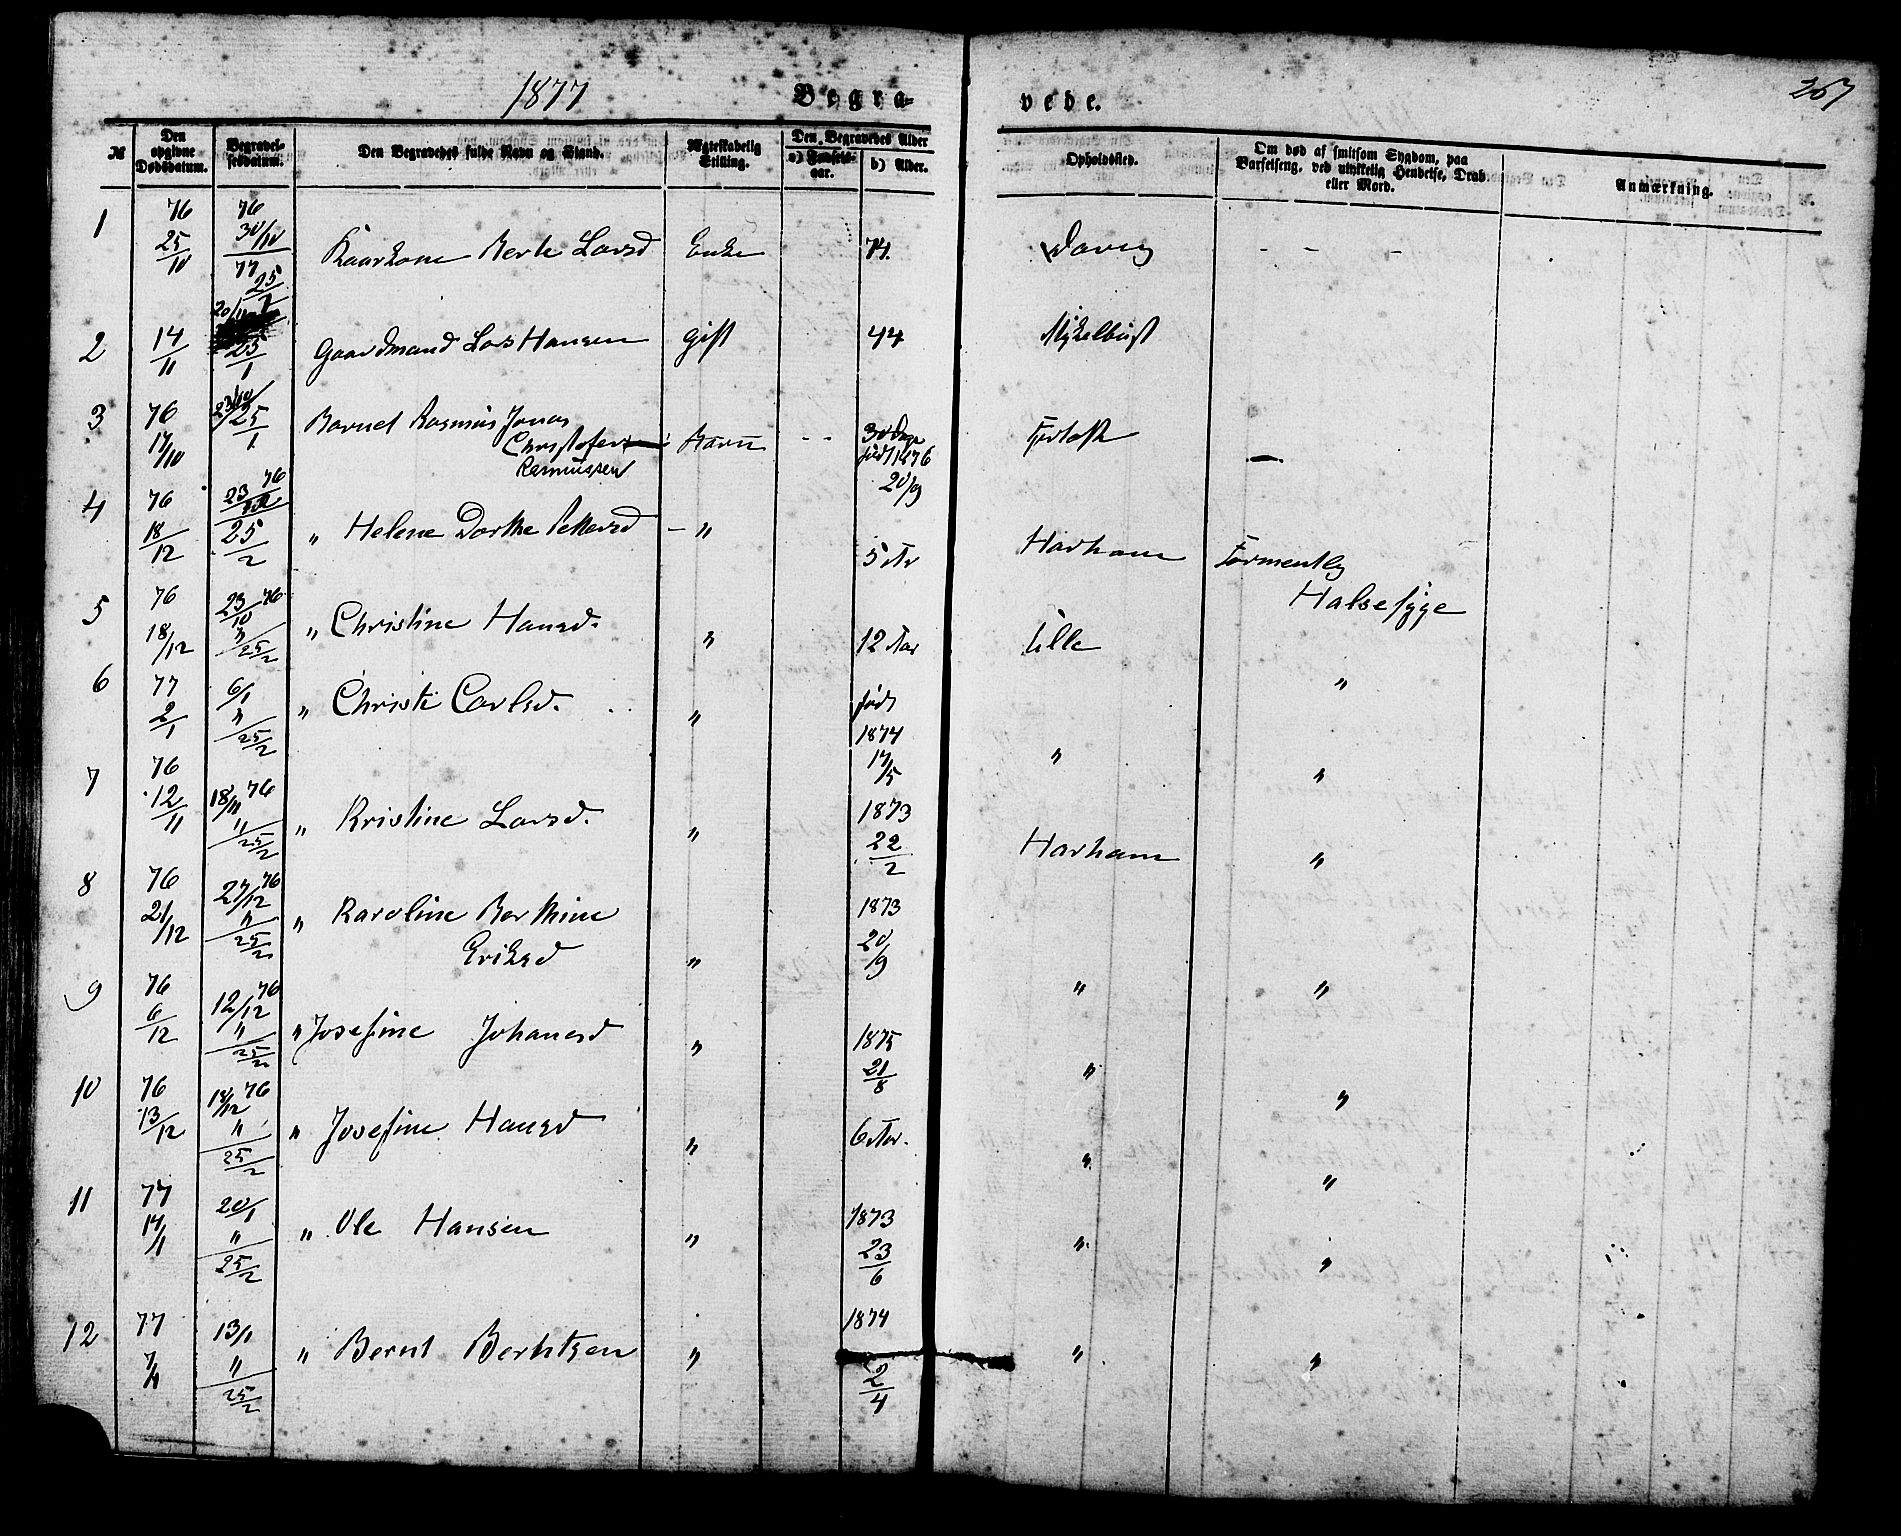 1877 Begravede. 267
№ Den opgivne Dødsdatum. Begravelsesdatum. Den Begravedes fulde Navn og Stand. Ægteskabelig Stilling. Den Begravedes Alder a) Fødselsaar. b) Alder. Opholdssted. Om død af smitsom Sygdom, paa Barselseng, ved ulykkelig Hendelse, Drab eller Mord. Anmærkning.
1 76 25/10 76 30/10 77 25/1 Kaarkone Berte Larsd Enke 74. - - -
2 14/11 20/11 23/1 Gaardmand Lars Hansen gift 44 Mykelbust
3 76 17/10 23/10 25/1 Barnet Rasmus Jonas
Christofer Rasmussen Barn - - 30 Dage født 1876 20/9 Fjørtoft -
4 76 18/12 23/12 76 25/2 " Helene Dorthe Pettersd - " 5 Ar Harham Formentlig
Halsesyge
5 76 18/12 23/10 76 " 25/2 " Christine Hansd. " 12 Aar Ulle "
6 77 2/1 6/1 " 25/2 " Christi Carlsd. " født 1874 17/5 " "
7 76 12/11 18/11 76 " 25/2 " Kristine Larsd. " 1873 22/2 Harham "
8 76 21/12 27/12 76 " 25/2 " Karoline Berthine
Eriksd " 1873 20/9 " "
9 76 6/12 12/12 76 " 25/2 " Josefine Johansd " 1875 21/8 " "
10 76 13/12 18/12 76 " 25/2 " Josefine Hansd " 6 Aar. " "
11 77 14/1 20/1 " 25/2 " Ole Hansen " 1873 23/6 " "
12 77 13/1 " 25/2 " Bernt Berntsen " 1874 2/4 " "